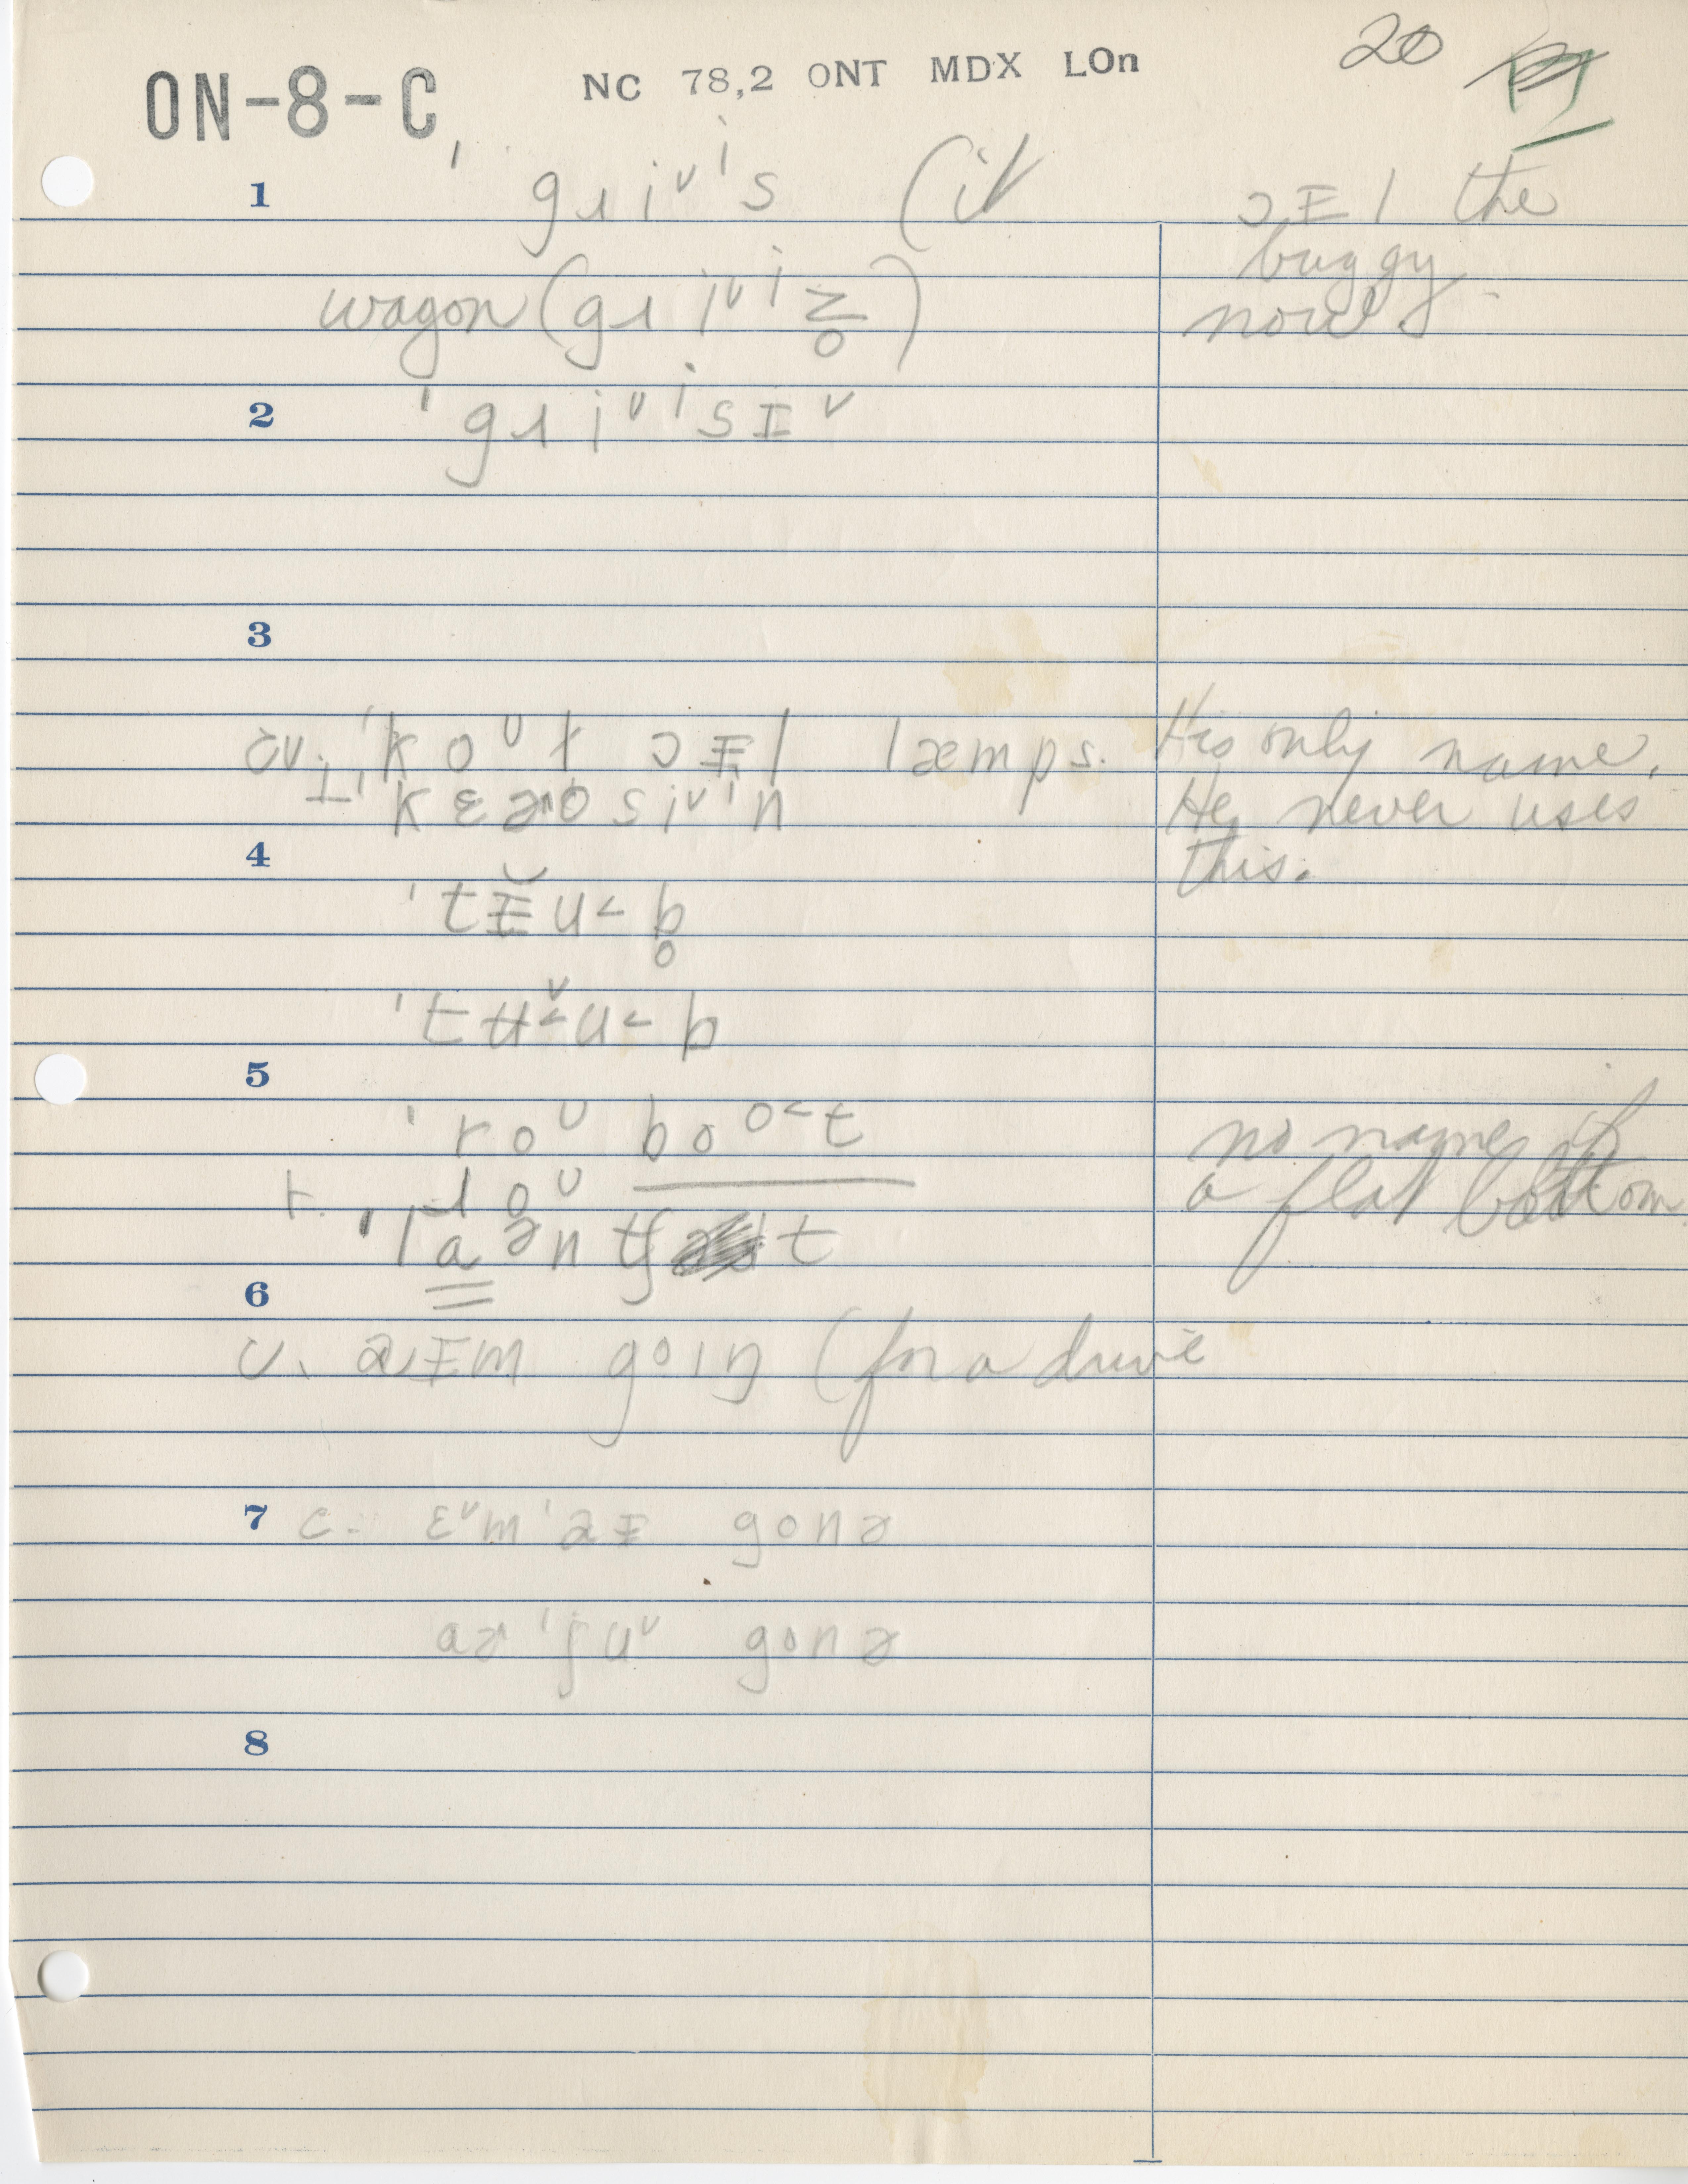 ON-8-C NC 78,2 ONT MDX LOn 20
1 ˈgɹiᵛⁱs (it
ɔɪl the
buggy
now
wagon (gɹiᵛⁱz̥)
2 ˈgɹiᵛⁱsɪᵛ
3
cv. ˈkoᵘl ɔɪl læmps.
His only name.
He never uses
this.
4
ˈtɪ̆u˂b̥
ˈtʉ˂u˂b
5
ˈroᵘ bo o˂t
no name if
a flat bottom
r. ɹoᵘ
ˈlaəntʃt
6
c. aɪm goɪŋ (for a drive
7 c. ɛᵛmˈaɪ gonə
aəˈʃuᵛ gonə
8